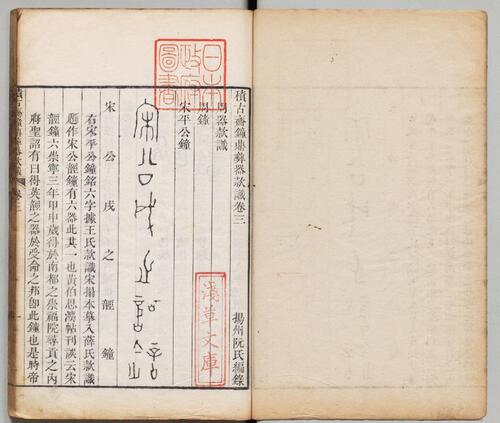 積古齋鐘鼎彝器款識卷三
揚州阮氏編錄
周器款識
周鐘
宋平公鐘
宋公戌之䪫鐘
右宋平公鐘銘六字據王氏款識宋搨本摹入薛氏款識
題作宋公䪫鐘有六器此其一也黃伯思法帖刊誤云宋
䪫鐘六崇寧三年甲申歲得於南都之崇福院尋貢之內
府聖詔有曰得英䪫之器於受命之邦卽此鐘也是時帝
積古齋鐘鼎彝器款識 卷三
一
日本
政府
圖書
淺草文庫